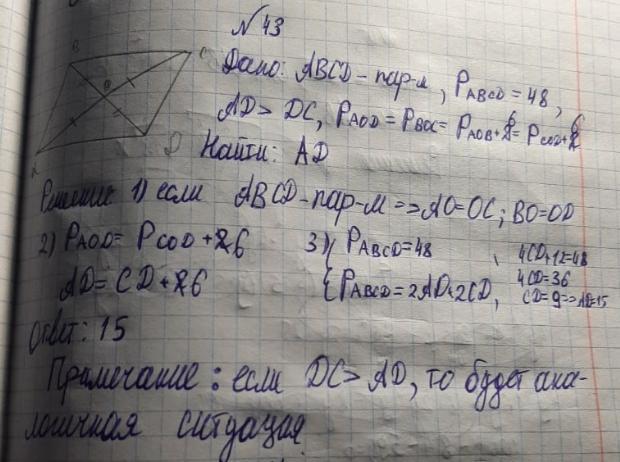 № 43
B C
O
A D
Дано: ABCD - пар-м, P_ABCD = 48,
AD > DC, P_AOD = P_BOC = P_AOB + 6 = P_COD + 6
Найти: AD
Решение 1) если ABCD - пар-м => AO = OC; BO = OD
2) P_AOD = P_COD + 6
AD = CD + 6
3) { P_ABCD = 48
{ P_ABCD = 2AD + 2CD,
4CD + 12 = 48
4CD = 36
CD = 9 => AD = 15
Ответ: 15
Примечание: если DC > AD, то будет ана-
логичная ситуация